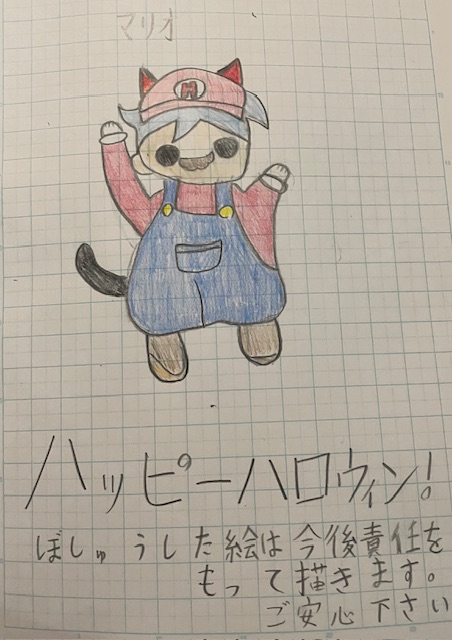 マリオ
M
ハッピーハロウィン!
ぼしゅうした絵は今後責任を
もって描きます。
ご安心下さい